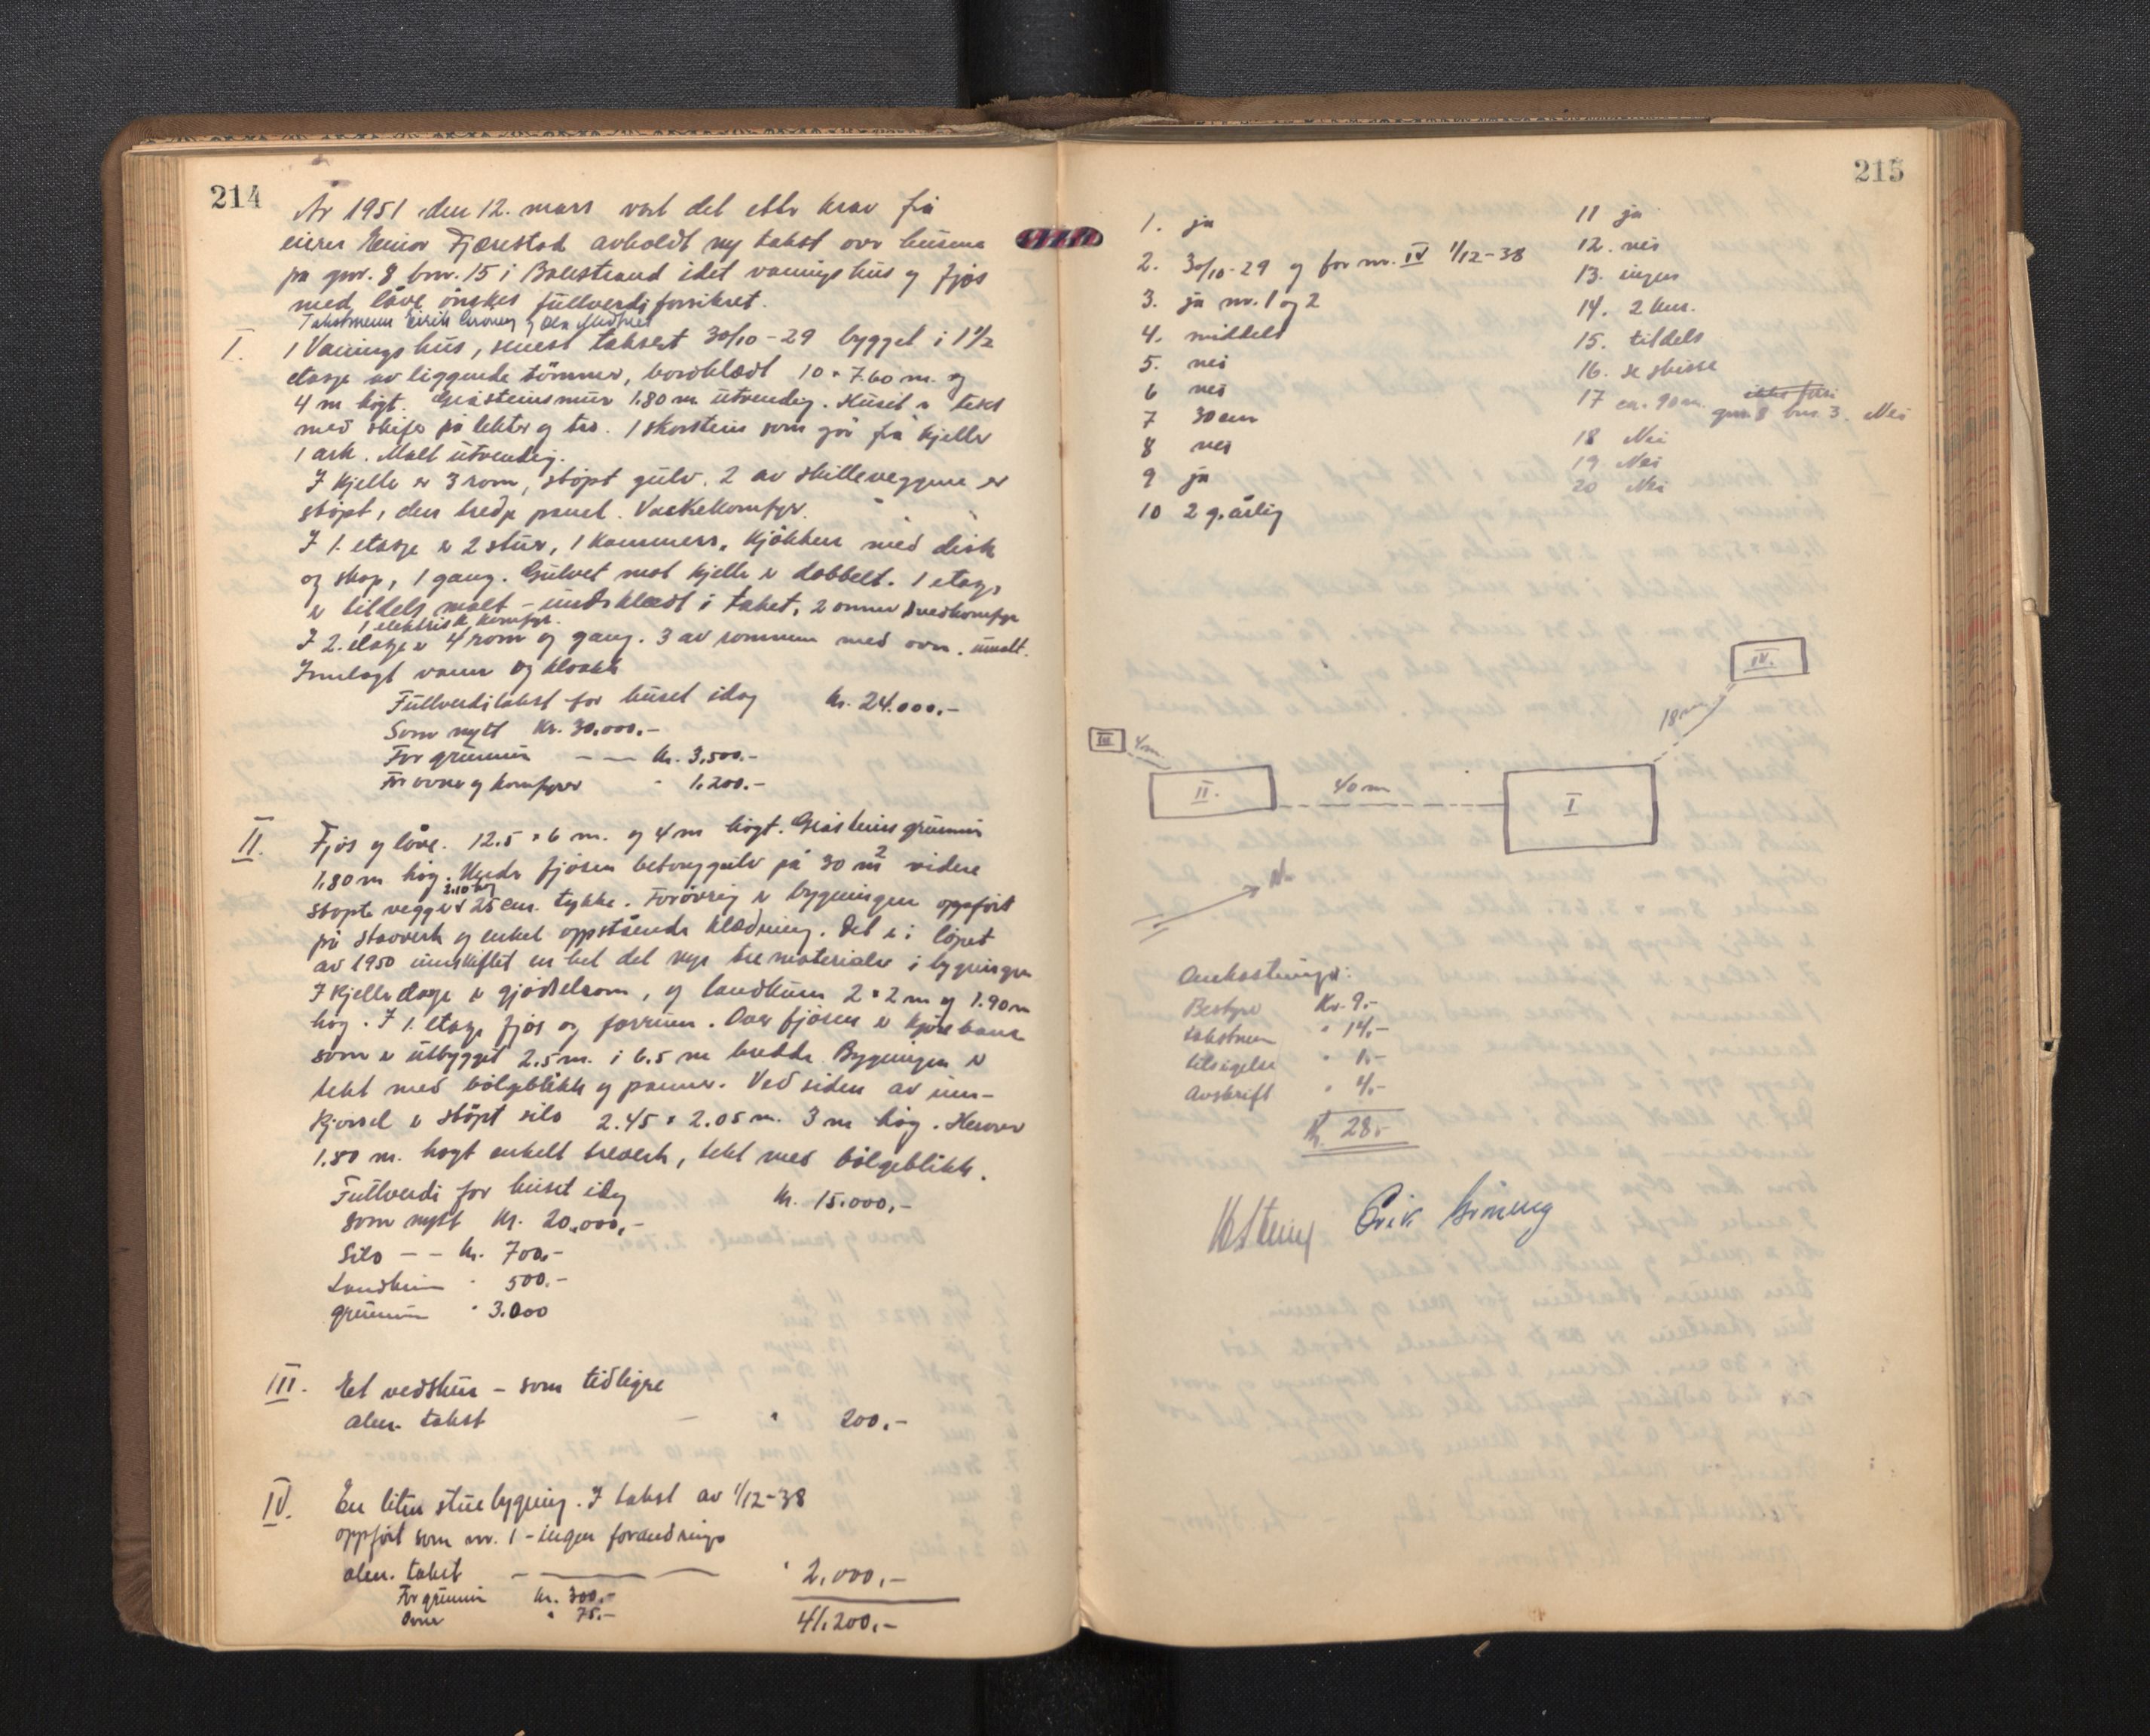 214
År 1951 den 12. mars vart det etter krav frå
eieren Einar Fjærestad avholdt ny takst over husene
på gnr. 8 bnr. 15 i Balestrand idet vaningshus og fjøs
med låve ønskes fullverdiforsikret.
Takstmenn Eirik Grøneng og Ola
I. 1 Vaningshus, senest taksert 30/10-29 bygget i 1½
etasje av liggende tømmer, bordklædt 10 × 7.60 m. og
4 m høgt. Gråsteinsmur 1.80 m utvendig. Huset er tekt
med skifer på lekter og tro. 1 skorstein som går frå kjeller
1 ark. Malt utvendig.
I kjeller er 3 rom, støpt gulv. 2 av skilleveggene er
støpt, den tredje panel. Vaskekomfyr.
I 1. etasje er 2 stuer, 1 kammers, kjøkken med disk
og skap, 1 gang. Gulvet mot kjeller er dobbelt. 1 etasje
er tildels malt – underklædt i taket, 2 ovner 1 vedkomfyr
1 elektrisk komfyr.
I 2. etasje er 4 rom og gang. 3 av rommene med ovn. umalt.
Innlagt vann og kloakk
Fullverditakst for huset idag kr. 24.000.-
Som nytt kr. 30.000.-
For grunnmur — — kr. 3.500.-
For ovner og komfyrer " 1.200.-
II. Fjøs og låve. 12.5 × 6 m. og 4 m høgt. Gråsteins grunnmur
1.80 m høg. Under fjøsen betonggulv på 30 m² videre
støpte vegger 2.10 høg 25 cm. tykke. Forøvrig er bygningen oppført
på stavverk og enkel oppstående klædning. Det er i løpet
av 1950 innskiftet en hel del nye trematerialer i bygningen
I kjelleretasje er gjødselrom, og landkum 2 × 2 m og 1.90 m
høg. I 1. etasje fjøs og forrum. Over fjøsen er kjørebane
som er utbygget 2.5 m. i 6.5 m bredde. Bygningen er
tekt med bølgeblikk og panner. Ved siden av inn-
kjørsel er støpt silo 2.45 × 2.05 m. 3 m høg. Herover
1.80 m. høgt enkelt treverk, tekt med bølgeblikk.
Fullverdi for huset idag kr. 15.000,-
som nytt kr. 20,000,-
Silo — — kr. 700,-
Landkum " 500.-
grunnmur " 3.000
III. Eet vedskur – som tidligere
alm. takst — " 200.-
IV. En liten stuebygning. I takst av 1/12-38
oppført som nr. 1 – ingen forandringer
alm. takst — " 2,000.-
For grunnmur kr. 300.-
Ovner " 75.-
41.200.-
215
1. ja
2. 30/10-29 og for nr. IV 1/12-38
3. ja nr. 1 og 2
4. middels
5. nei
6 nei
7 30 cm
8 nei
9 ja
10 2 g. årlig
11 ja
12. nei
13. ingen
14. 2 km.
15. tildels
16. se skisse
17 ca. 90 m. gnr 8 bnr. 3. Nei
18 Nei
19 Nei
20 Nei
IV.
18 m
III 4 m
II. 40 m I
N.
Omkostninger:
Bestyrer Kr. 9.-
takstmenn " 14.-
tilsigelse " 1.-
Avskrift " 4.-
Kr. 28.-
Eirik Grøneng